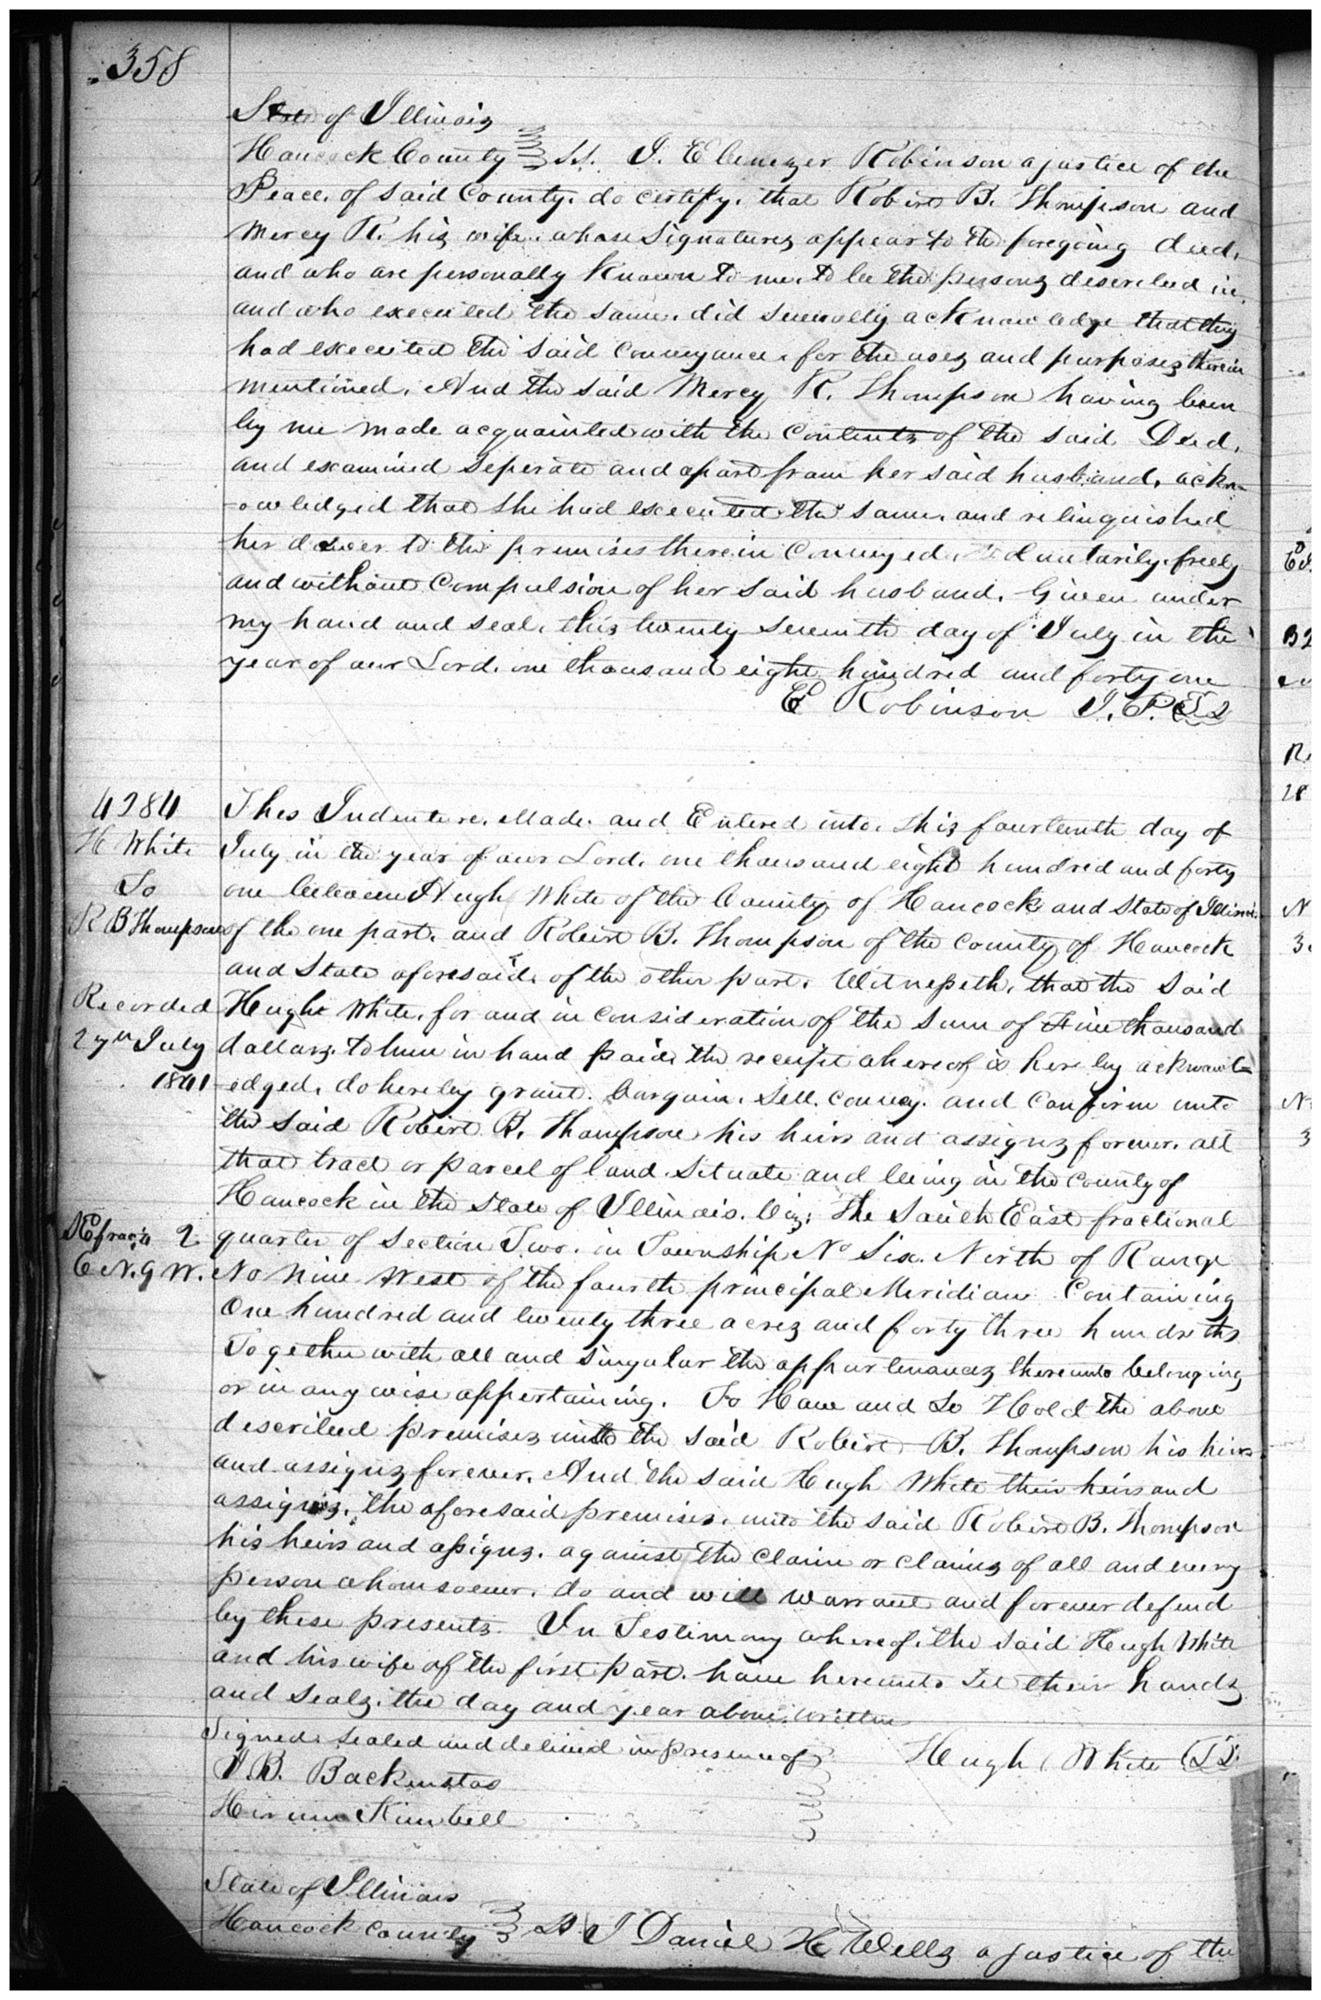 358
State of Illinois
Hancock County SS. I. Ebenezer Robinson a justice of the
Peace. of said County. do certify. that Robert B. Thompson and
Mercy R. his wife. whose Signatures appear to the foregoing deed.
and who are personally known to me. to be the persons described in.
and who executed the same. did severally acknowledge that they
had executed the said conveyance. for the uses and purposes therein
mentioned. And the said Mercy R. Thompson having been
by me made acquainted with the contents of the said Deed.
and examined seperate and apart from her said husband. ackn-
-owledged that she had executed the same. and relinquished
her dower to the premises therein conveyed. voluntarily. freely
and without compulsion of her said husband. Given under
my hand and seal. this twenty seventh day of July in the
year of our Lord. one thousand eight hundred and forty one
E Robinson J. P.
4284
H White
To
R B Thompson
Recorded
27th July
1841
SE frac 1/4 2
6 N. 9 W.
This Indenture. Made. and Entered into. this fourteenth day of
July in the year of our Lord. one thousand eight hundred and forty
one between Hugh White of the County of Hancock and State of Illinois.
of the one part. and Robert B. Thompson of the county of Hancock
and State aforesaid. of the other part. Witnesseth. that the said
Hugh White. for and in consideration of the sum of thousand
dollars. to him in hand paid. the receipt whereof is hereby acknowl-
-edged. do hereby grant. bargain. sell. convey. and confirm unto
the said Robert B. Thompson his heirs and assigns forever. all
that tract or parcel of land. situate and being in the county of
Hancock in the State of Illinois. Viz; the South East fractional
quarter of Section Two. in Township No Six. North of Range
No Nine West of the fourth principal Meridian Containing
One hundred and twenty three acres and forty three hundredths
Together with all and singular the appurtenances thereunto belonging
or in any wise appertaining. To Have and to Hold the above
described premises unto the said Robert B. Thompson his heirs
and assigns forever. And the said Hugh White their heirs and
assigns. the aforesaid premises. unto the said Robert B. Thompson
his heirs and assigns. against the claim or claims of all and every
person whomsoever. do and will warrant and forever defend
by these presents. In Testimony whereof. the said Hugh White
and his wife of the first part. have hereunto set their hands
and seals. the day and year above written
Signed sealed and delivered in presence of
Hugh White
J. B. Backenstos
Hiram Kimball
State of Illinois
Hancock County SS I Daniel H Wells a justice of the